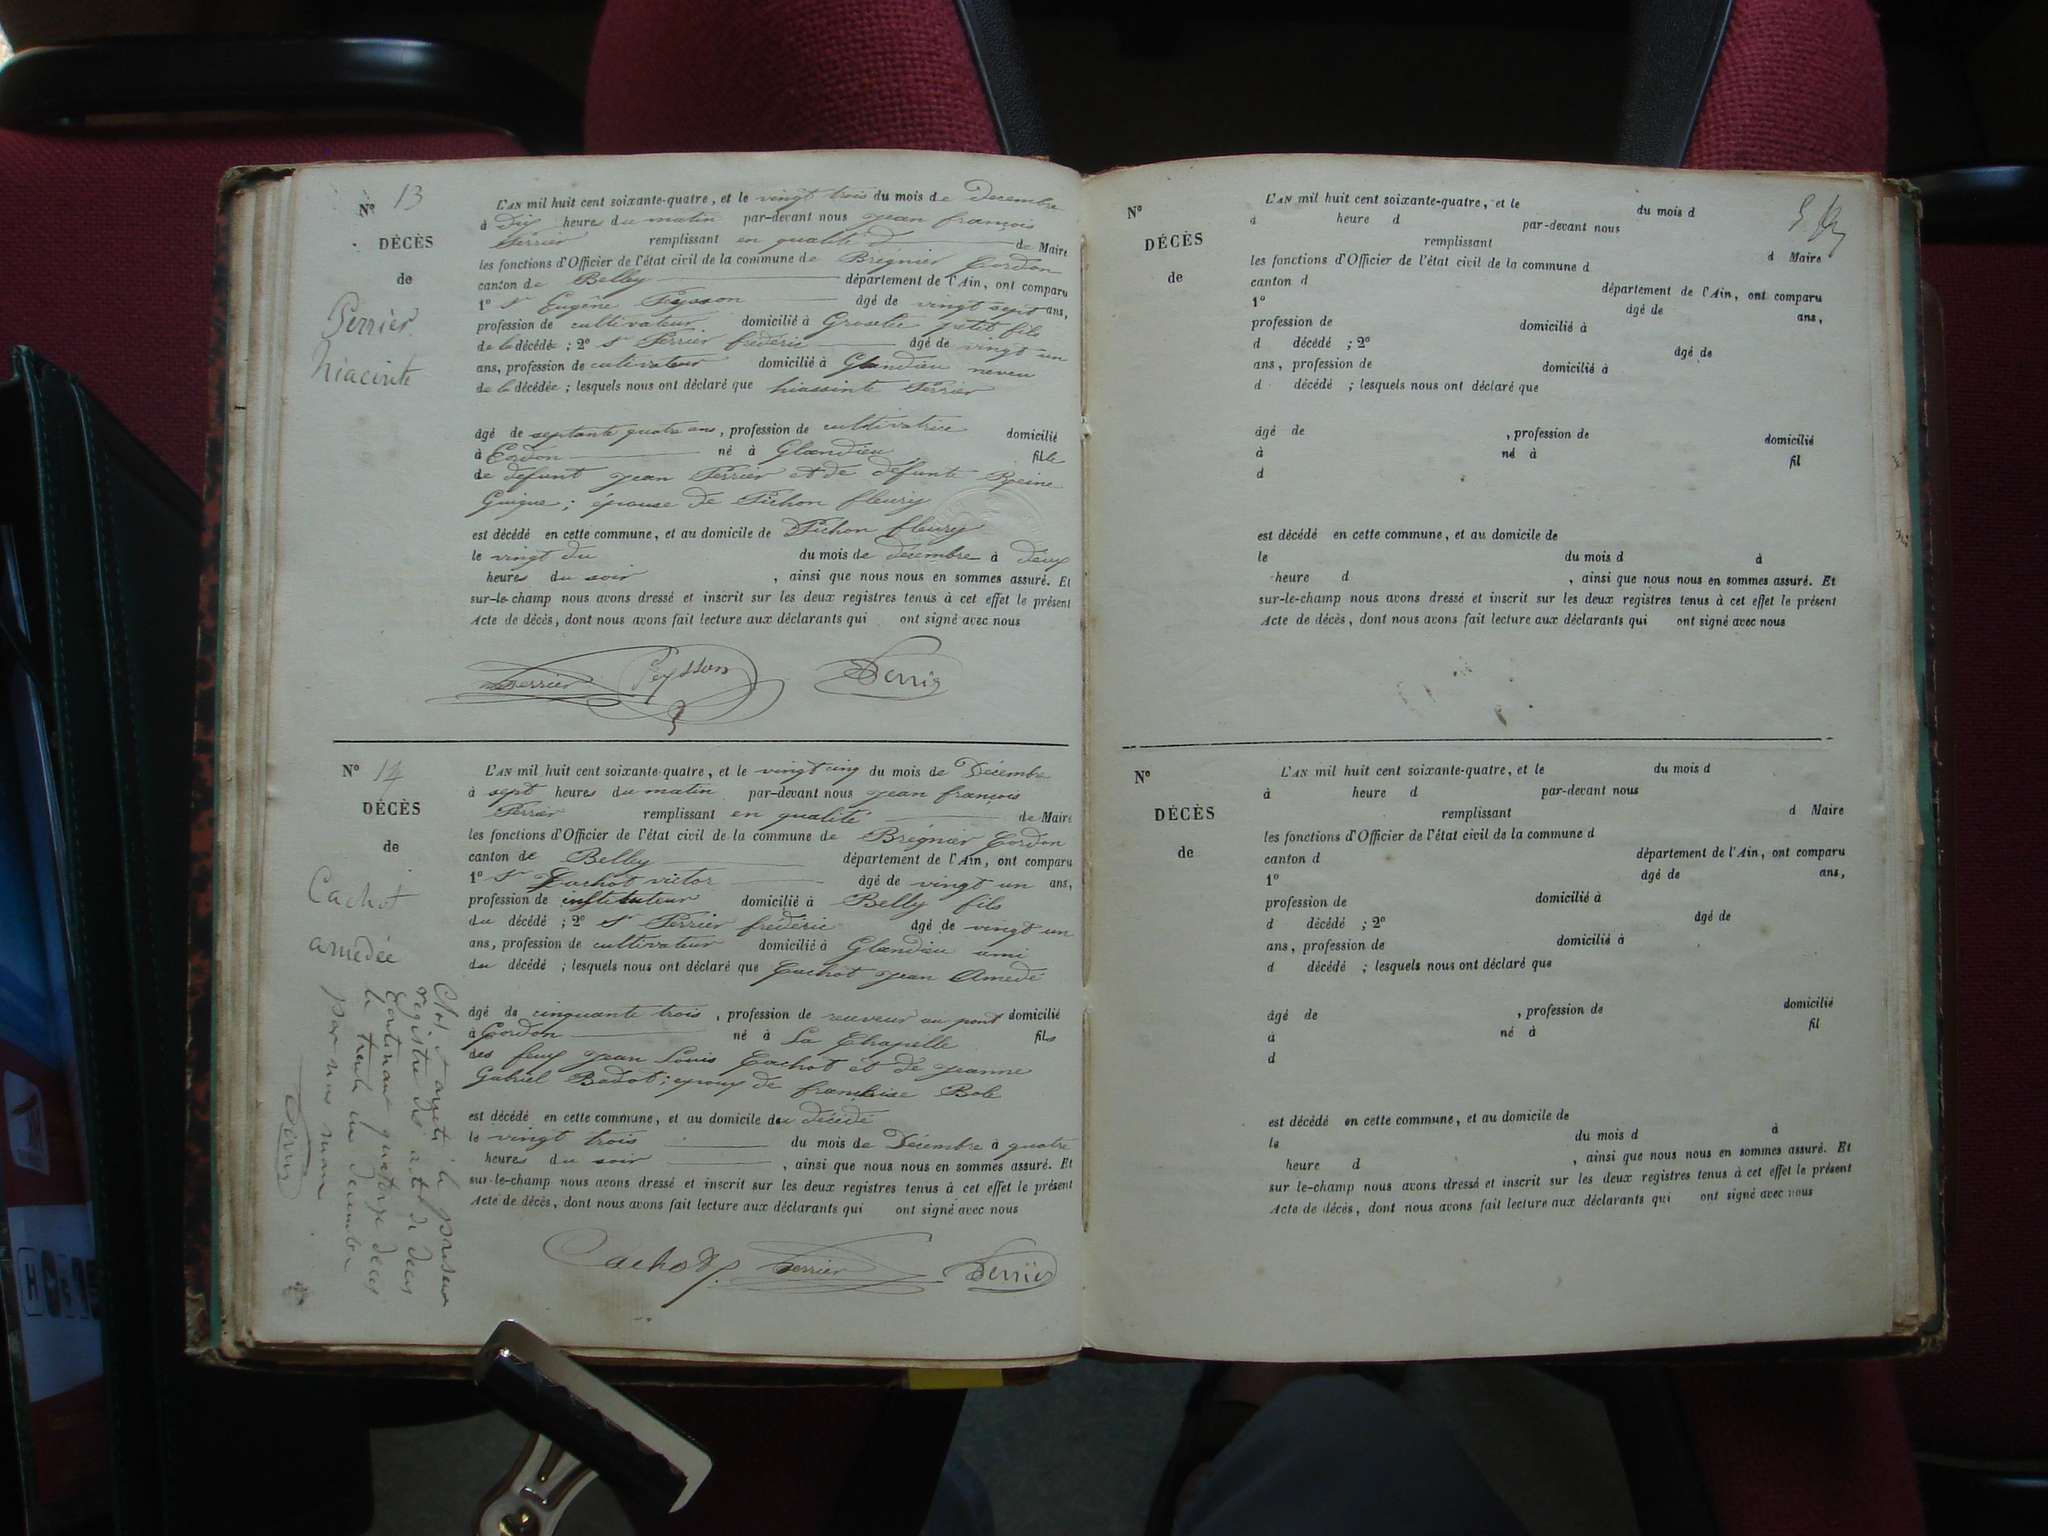 N° 13
DÉCÈS
de
Perrier
hiacinte
L'AN mil huit cent soixante-quatre, et le vingt trois du mois de Decembre
à Dix heure du matin par-devant nous jean françois
Perrier remplissant en qualité d de Maire
les fonctions d'Officier de l'état civil de la commune de Brégnier Cordon
canton de Belley département de l'Ain, ont comparu
1° Sr Eugène Peysson âgé de vingt sept ans,
profession de cultivateur domicilié à Groslée petit fils
de la décédée ; 2° Sr Perrier frédéric âgé de vingt un
ans, profession de cultivateur domicilié à Glandieu neveu
de la décédée ; lesquels nous ont déclaré que hiassinte Perrier
âgé de septante quatre ans, profession de cultivatrice domicilié
à Cordon né à Glandieu fille
de défunt jean Perrier et de défunte Reine
Guigue ; épouse de Pichon fleury
est décédé en cette commune, et au domicile de Pichon fleury
le vingt du du mois de décembre à deux
heures du soir , ainsi que nous nous en sommes assuré. Et
sur-le-champ nous avons dressé et inscrit sur les deux registres tenus à cet effet le présent
Acte de décès, dont nous avons fait lecture aux déclarants qui ont signé avec nous
Perrier Peysson Perrier
N° 14
DÉCÈS
de
Cachot
amédée
L'AN mil huit cent soixante-quatre, et le vingt cinq du mois de Décembre
à sept heures du matin par-devant nous jean françois
Perrier remplissant en qualité de Maire
les fonctions d'Officier de l'état civil de la commune de Brégnier Cordon
canton de Belley département de l'Ain, ont comparu
1° Sr Cachot victor âgé de vingt un ans,
profession de instituteur domicilié à Belly fils
du décédé ; 2° Sr Perrier frédéric âgé de vingt un
ans, profession de cultivateur domicilié à Glandieu ami
du décédé ; lesquels nous ont déclaré que Cachot jean Amédé
âgé de cinquante trois , profession de receveur au pont domicilié
à Cordon né à La Chapelle fils
des feux jean Louis Cachot et de jeanne
Gabriel Badot ; epoux de françoise Bole
est décédé en cette commune, et au domicile du décédé
le vingt trois du mois de Décembre à quatre
heures du soir , ainsi que nous nous en sommes assuré. Et
sur-le-champ nous avons dressé et inscrit sur les deux registres tenus à cet effet le présent
Acte de décès, dont nous avons fait lecture aux déclarants qui ont signé avec nous
Cachot Perrier Perrier
Clos et arrêté le présent
registre des actes de deces
Contenant quatorze deces
le trente un decembre
par nous maire
Perrier
N°
DÉCÈS
de
L'AN mil huit cent soixante-quatre, et le du mois d
à heure d par-devant nous
remplissant d Maire
les fonctions d'Officier de l'état civil de la commune d
canton d département de l'Ain, ont comparu
1° âgé de ans,
profession de domicilié à
d décédé ; 2° âgé de
ans, profession de domicilié à
d décédé ; lesquels nous ont déclaré que
âgé de , profession de domicilié
à né à fil
d
est décédé en cette commune, et au domicile de
le du mois d à
heure d , ainsi que nous nous en sommes assuré. Et
sur-le-champ nous avons dressé et inscrit sur les deux registres tenus à cet effet le présent
Acte de décès, dont nous avons fait lecture aux déclarants qui ont signé avec nous
N°
DÉCÈS
de
L'AN mil huit cent soixante-quatre, et le du mois d
à heure d par-devant nous
remplissant d Maire
les fonctions d'Officier de l'état civil de la commune d
canton d département de l'Ain, ont comparu
1° âgé de ans,
profession de domicilié à
d décédé ; 2° âgé de
ans, profession de domicilié à
d décédé ; lesquels nous ont déclaré que
âgé de , profession de domicilié
à né à fil
d
est décédé en cette commune, et au domicile de
le du mois d à
heure d , ainsi que nous nous en sommes assuré. Et
sur le-champ nous avons dressé et inscrit sur les deux registres tenus à cet effet le présent
Acte de décès, dont nous avons fait lecture aux déclarants qui ont signé avec nous